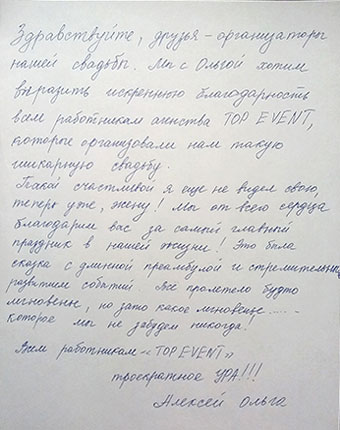 Здравствуйте, друзья-организаторы
нашей свадьбы. Мы с Ольгой хотим
выразить искреннюю благодарность
всем работникам агенства TOP EVENT,
которые организовали нам такую
шикарную свадьбу.
Такой счастливой я еще не видел свою,
теперь уже, жену! Мы от всего сердца
благодарим вас за самый главный
праздник в нашей жизни! Это была
сказка с длинной преамбулой и стремительным
развитием событий. Все пролетело будто
мгновенье, но зато какое мгновенье......
которое мы не забудем никогда!
Всем работникам «TOP EVENT»
троекратное УРА!!!
Алексей Ольга